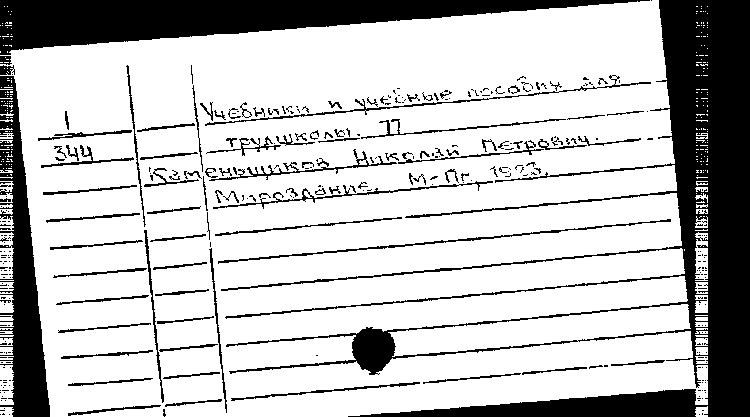 Учебники и учебные пособия для
1
трудшколы. 77
344
Каменьщиков, Николай Петрович.
Мироздание. М-Пг, 1923.